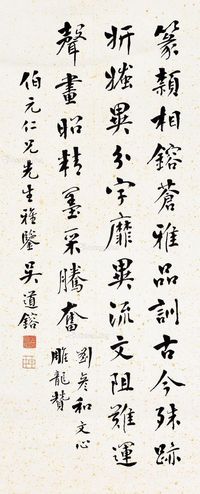 篆類相鎔蒼雅品訓古今殊跡
妍媸異分字靡異流文阻難運
聲畫昭精墨采騰奮
劉彥和文心
雕龍贊
伯元仁兄先生雅鑒 吳道鎔